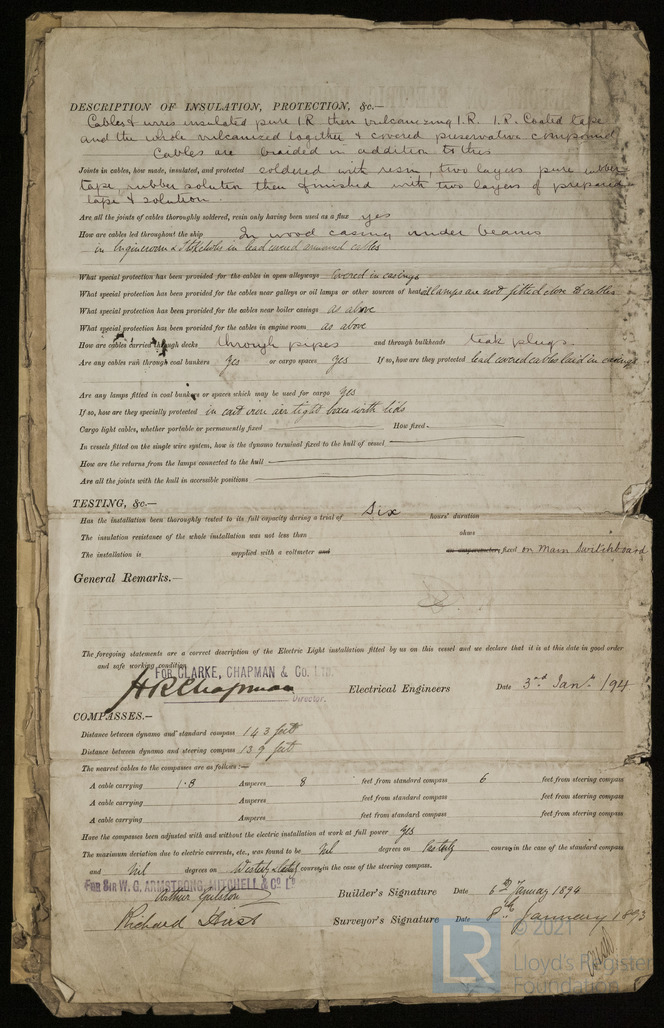 DESCRIPTION OF INSULATION, PROTECTION, &c.—
Cables & wires insulated pure I.R. then vulcanizing I.R. I.R. Coated tape
and the whole vulcanized together & covered preservative compound
Cables are braided in addition to this
Joints in cables, how made, insulated, and protected soldered with resin, two layers pure rubber
tape, rubber solution then finished with two layers of prepared
tape & solution
Are all the joints of cables thoroughly soldered, resin only having been used as a flux yes
How are cables led throughout the ship In wood casing under beams
in Engineroom & Stokeholes in lead covered armoured cables
What special protection has been provided for the cables in open alleyways covered in casings
What special protection has been provided for the cables near galleys or oil lamps or other sources of heat oil lamps are not fitted close to cables
What special protection has been provided for the cables near boiler casings as above
What special protection has been provided for the cables in engine room as above
How are cables carried through decks through pipes and through bulkheads teak plugs
Are any cables run through coal bunkers yes or cargo spaces yes If so, how are they protected lead covered cables laid in casings
Are any lamps fitted in coal bunkers or spaces which may be used for cargo yes
If so, how are they specially protected in cast iron air tight boxes with lids
Cargo light cables, whether portable or permanently fixed How fixed
In vessels fitted on the single wire system, how is the dynamo terminal fixed to the hull of vessel
How are the returns from the lamps connected to the hull
Are all the joints with the hull in accessible positions
TESTING, &c.—
Has the installation been thoroughly tested to its full capacity during a trial of Six hours' duration
The insulation resistance of the whole installation was not less than ohms
The installation is supplied with a voltmeter and an amperemeter, fixed on Main Switchboard
General Remarks.—
The foregoing statements are a correct description of the Electric Light installation fitted by us on this vessel and we declare that it is at this date in good order
and safe working condition
FOR CLARKE, CHAPMAN & Co. LTD.
H R Chapman Director. Electrical Engineers Date 3rd Jany. 1894
COMPASSES.—
Distance between dynamo and standard compass 143 feet
Distance between dynamo and steering compass 139 feet
The nearest cables to the compasses are as follows:—
A cable carrying 1.8 Amperes 8 feet from standard compass 6 feet from steering compass
A cable carrying Amperes feet from standard compass feet from steering compass
A cable carrying Amperes feet from standard compass feet from steering compass
Have the compasses been adjusted with and without the electric installation at work at full power yes
The maximum deviation due to electric currents, etc., was found to be nil degrees on course, in the case of the standard compass
and nil degrees on course, in the case of the steering compass.
FOR SIR W. G. ARMSTRONG, MITCHELL & Co. LD
Arthur Builder's Signature Date 6th January 1894
Richard Hirst Surveyor's Signature Date 8th January 1893
LR © 2021
Lloyd's Register
Foundation